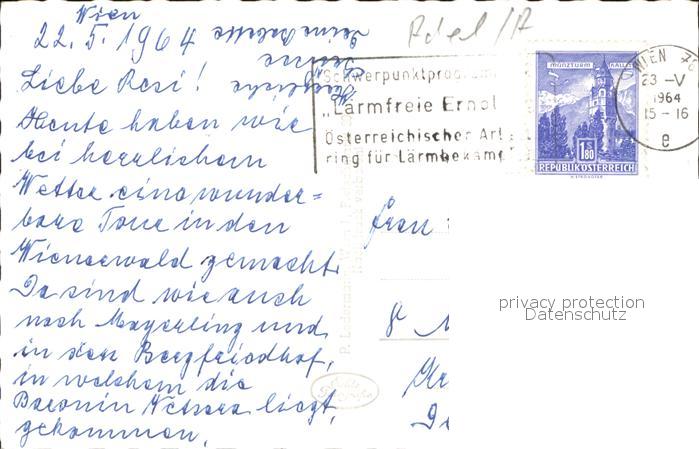 Wien
22. 5. 1964
Liebe Resi!
Heute haben wir
bei herrlichem
Wetter eine wunder=
bare Tour in den
Wienerwald gemacht.
Da sind wir auch
nach Mayerling und
in den Bergfriedhof,
in welchem die
Baronin Vetsera liegt,
gekommen.
Herzliche
Grüße
Deine Babette
Schwerpunktprogramm
„Lärmfreie Ernol
Österreichischer Arb
ring für Lärmbekämpf
MÜNZTURM HALL
1.80 S
REPUBLIK ÖSTERREICH
WIEN
23 -V
1964
15 - 16
e
P. Ledermann, Wien I,
Frau
8
privacy protection
Datenschutz